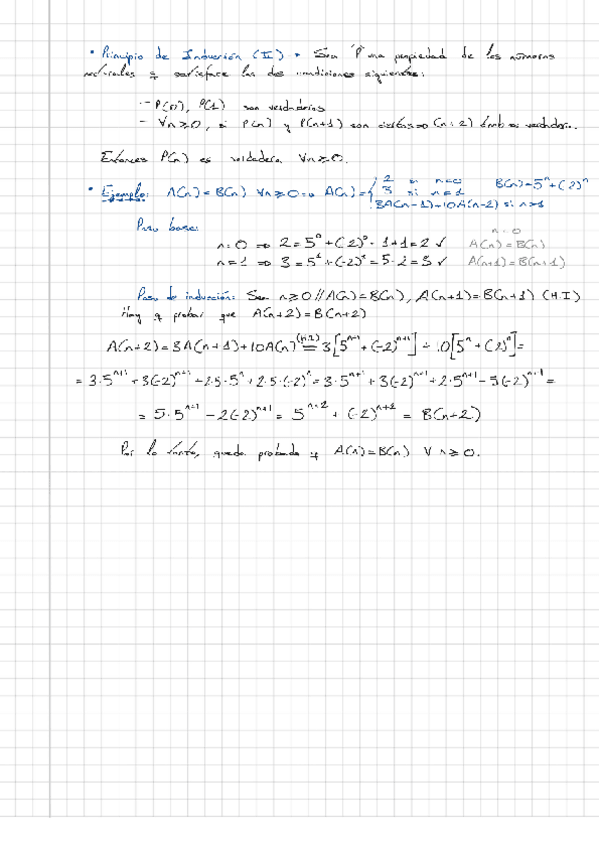 • Principio de Inducción (II) • Sea "P" una propiedad de los números
naturales q satisface las dos condiciones siguientes:
- P(0), P(1) son verdaderas
- ∀n≥0, si P(n) y P(n+1) son ciertas ⇒ P(n+2) también es verdadera.
Entonces P(n) es verdadera ∀n≥0.
• Ejemplo: A(n)=B(n) ∀n≥0 ⇒ A(n)={ 2 si n=0
3 si n=1
3A(n-1)+10A(n-2) si n>1
B(n)=5ⁿ+(-2)ⁿ
Paso base:
n=0 ⇒ 2=5⁰+(-2)⁰=1+1=2 ✓
n=1 ⇒ 3=5¹+(-2)¹=5-2=3 ✓
n=0
A(n)=B(n)
A(n+1)=B(n+1)
Paso de inducción: Sea n≥0 // A(n)=B(n), A(n+1)=B(n+1) (H.I)
Hay q probar que A(n+2)=B(n+2)
A(n+2)=3A(n+1)+10A(n) (H.I)= 3[5ⁿ⁺¹+(-2)ⁿ⁺¹]+10[5ⁿ+(-2)ⁿ]=
=3·5ⁿ⁺¹+3(-2)ⁿ⁺¹+2·5·5ⁿ+2·5·(-2)ⁿ=3·5ⁿ⁺¹+3(-2)ⁿ⁺¹+2·5ⁿ⁺¹-5(-2)ⁿ⁺¹=
=5·5ⁿ⁺¹-2(-2)ⁿ⁺¹=5ⁿ⁺²+(-2)ⁿ⁺²=B(n+2)
Por lo tanto, queda probado q A(n)=B(n) ∀n≥0.